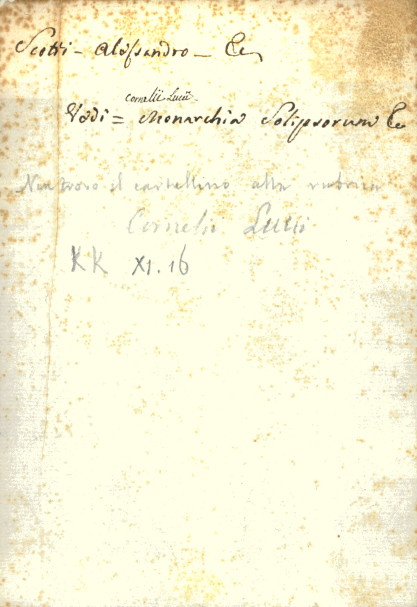 Scotti - Alessandro - &c
Cornelii Lucii
Vedi = Monarchia Solipsorum &c
Non trovo il cartellino alla rubrica
Cornelii Lucii
KK XI. 16